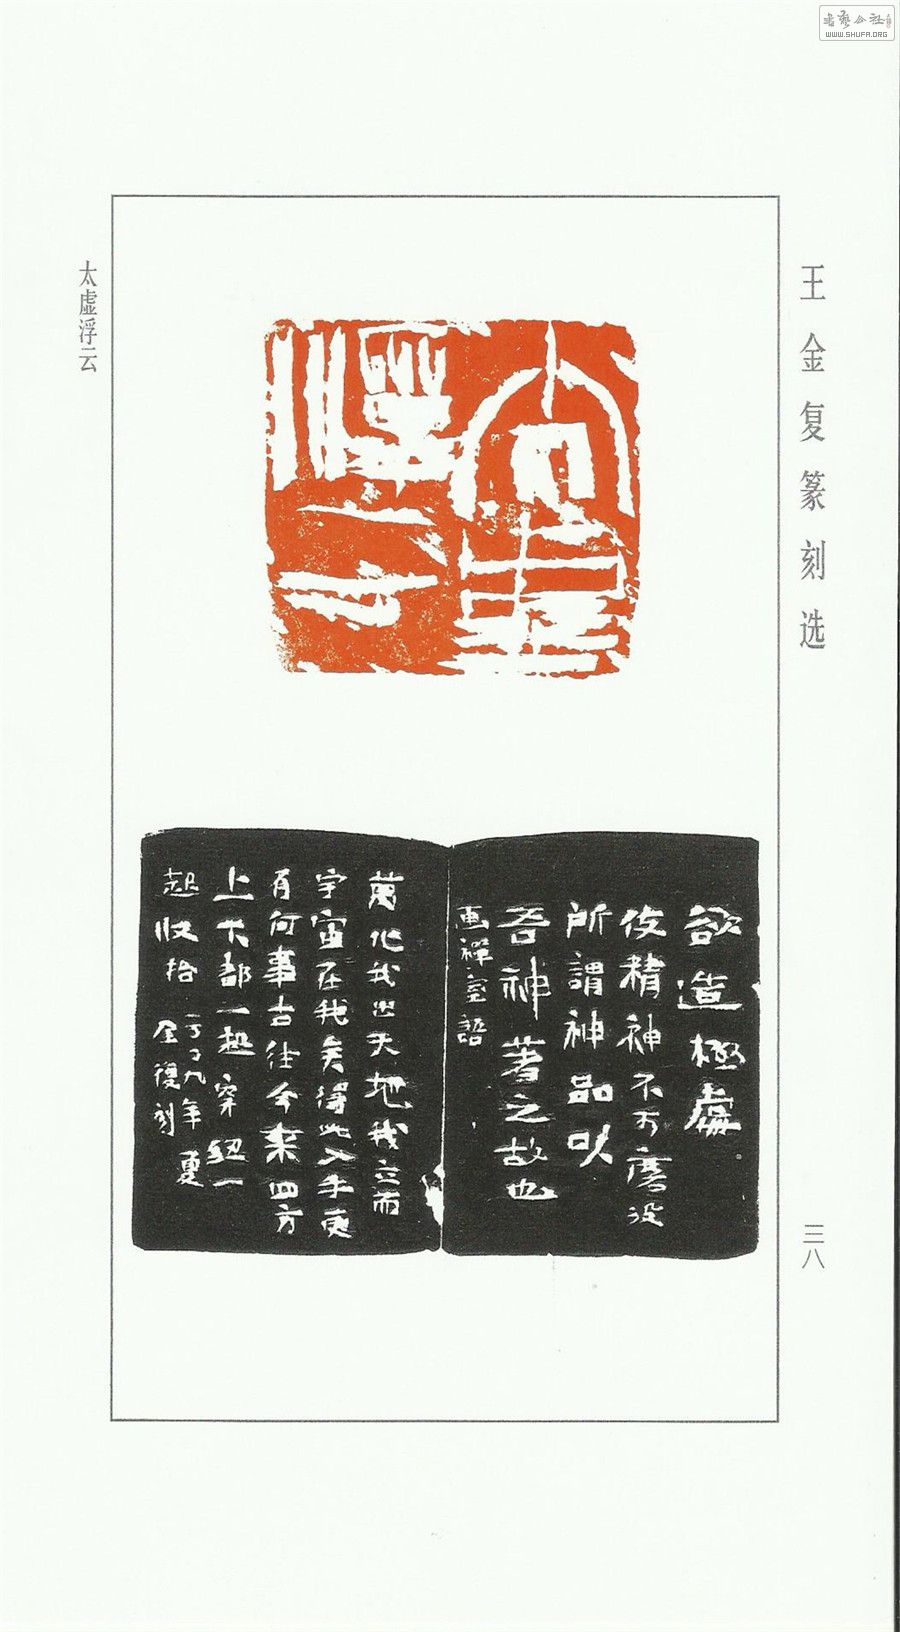 書藝公社
WWW.SHUFA.ORG
王金复篆刻选
三八
太虚浮云
欲造極處
使精神不可磨没
所謂神品以
吾神著之故也
画禪室語
萬化我出天地我立而
宇宙在我矣得此入手更
有何事古往今來四方
上下都一起穿紐一
起收拾
九年夏
金復刻